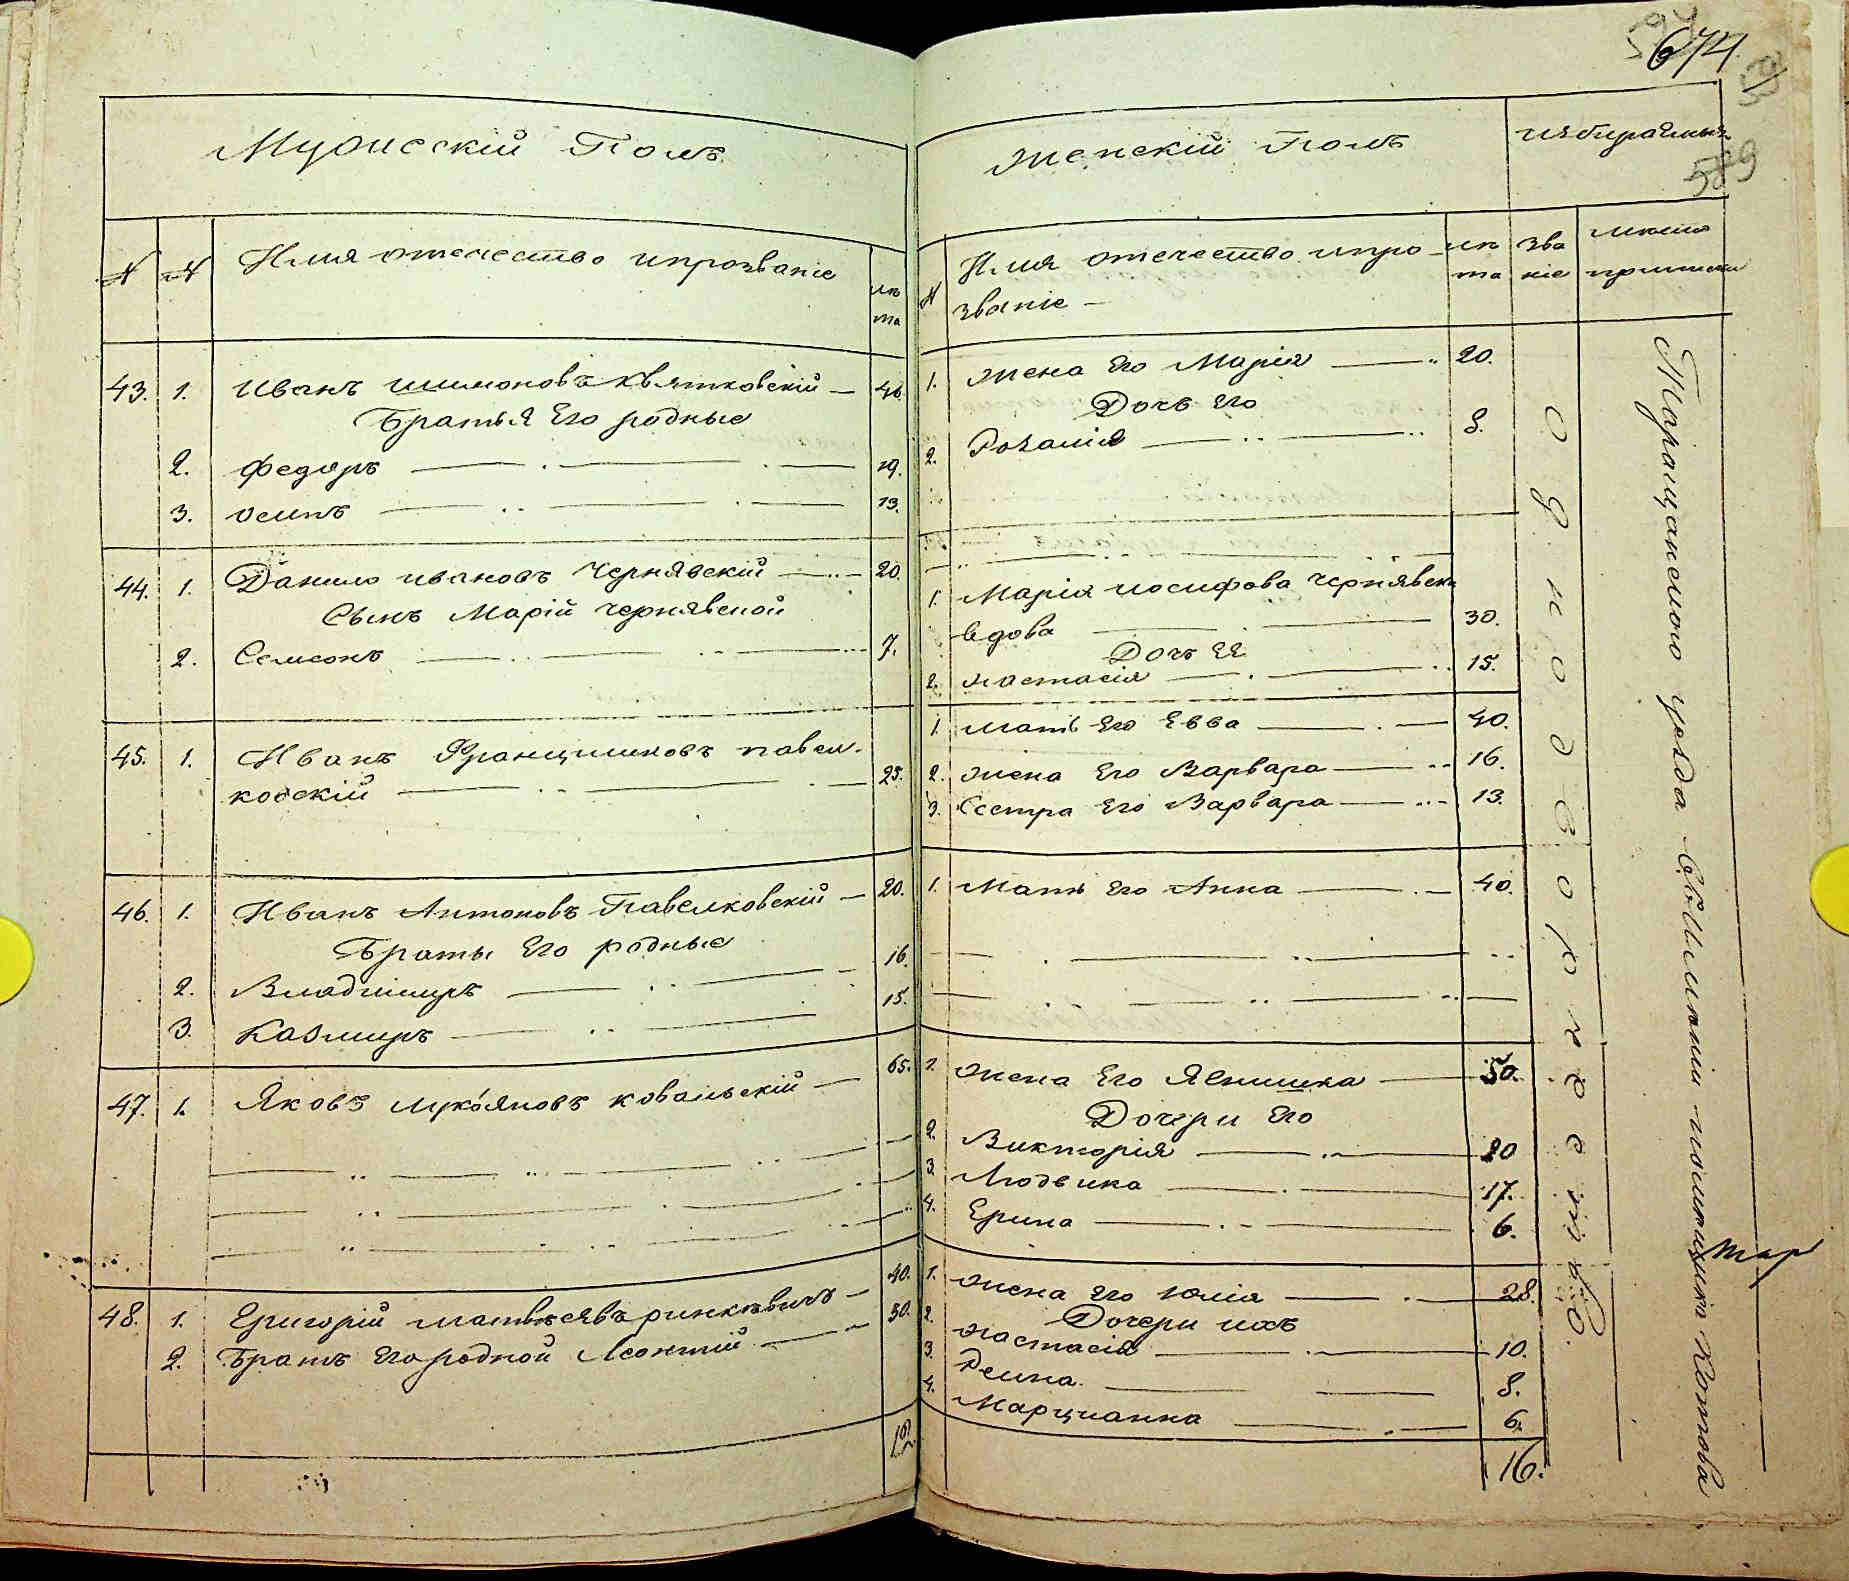 674.
589
Мужескій Полъ
N
N
Имя отечество ипрозваніе
лѣ
та
43. 1. Иванъ Шимоновъ Квятковскій — 40.
Братья Его родные
2. Федоръ — 19.
3. Осипъ — 13.
44. 1. Данило ивановъ Чернявскій — 20.
Сынъ Марій чернявской
2. Семионъ — 7.
45. 1. Иванъ Францишковъ павел-
ковскій — 25.
46. 1. Иванъ Антоновъ Павелковскій — 20.
Браты Его родные
2. Владимиръ — 16.
3. Казмиръ — 15.
47. 1. Яковъ лукіяновъ ковальскій — 65.
48. 1. Григорій матвѣевъ ринкевичъ — 40.
2. Братъ Его родной Леонтій — 30.
12.
Женскій Полъ
избираемыя
N
Имя отечество ипро-
званіе —
лѣ
та
Зва
ніе
место
приписки
1. жена Его Марія — 20.
Дочь Его
2. Розалія — 8.
1. Марія иосифова чернявска
вдова — 30.
Дочь ЕЯ
2. настасія — 15.
1. мать Его Евва — 40.
2. жена Его Варвара — 16.
3. Сестра Его Варвара — 13.
1. Мать Его Анна — 40.
1. жена Его Ягнишка — 50.
Дочери Его
2. Викторія — 20
3. Людвика — 17.
4. Ерина — 6.
1. жена Его юлія — 28.
Дочери ихъ
2. настасія — 10.
3. Реина — 8.
4. Марцианна — 6.
16.
Однодворчество.
Таращанского уезда имѣніи помещика Котова